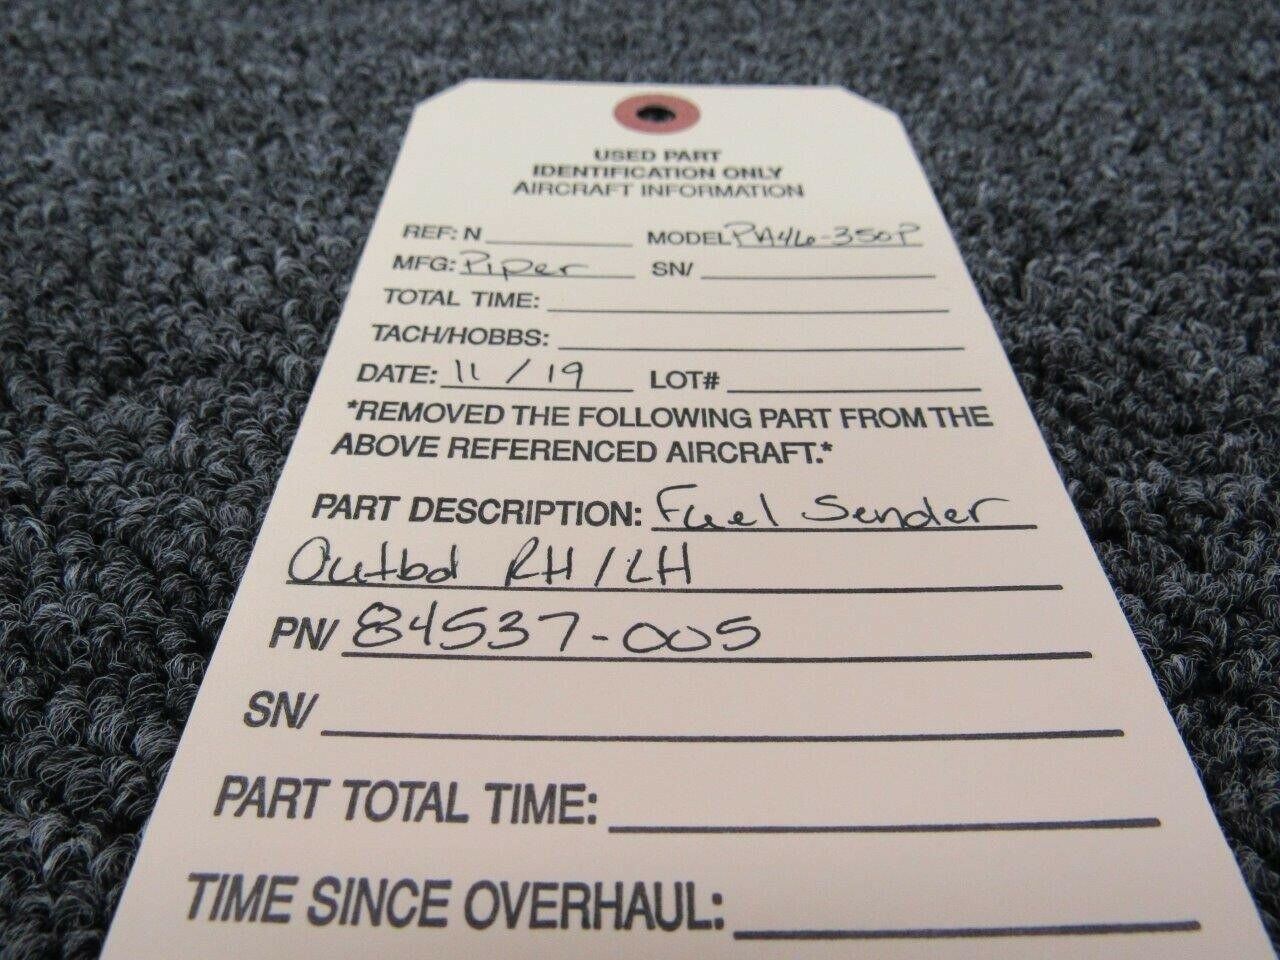 USED PART
IDENTIFICATION ONLY
AIRCRAFT INFORMATION
REF: N MODEL PA46-350P
MFG: Piper SN/
TOTAL TIME:
TACH/HOBBS:
DATE: 11/19 LOT#
*REMOVED THE FOLLOWING PART FROM THE
ABOVE REFERENCED AIRCRAFT.*
PART DESCRIPTION: Fuel Sender
Outbd RH/LH
PN/ 84537-005
SN/
PART TOTAL TIME:
TIME SINCE OVERHAUL: